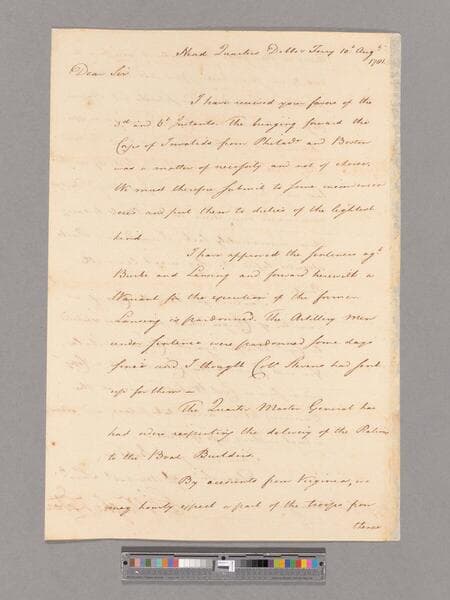 Head Quarters Dobbs Ferry 10th Augt
1781
Dear Sir
I have received your favors of the
3rd and 6th Instants. The bringing forward the
Corps of Invalids from Philada and Boston
was a matter of necessity and not of choice.
We must therefore submit to some inconvenien
cies and put them to duties of the lightest
kind
I have approved the sentences agt
Burke and Lansing and forward herewith a
Warrant for the execution of the former
Lansing is pardoned. The Artillery Men
under sentence were pardoned some days
since and I thought Colo Stevens had sent
up for them —
The Quarter Master General has
had orders respecting the delivery of the
to the Boat Builders.
By accounts from Virginia, we
may hourly expect a part of the troops from
thence